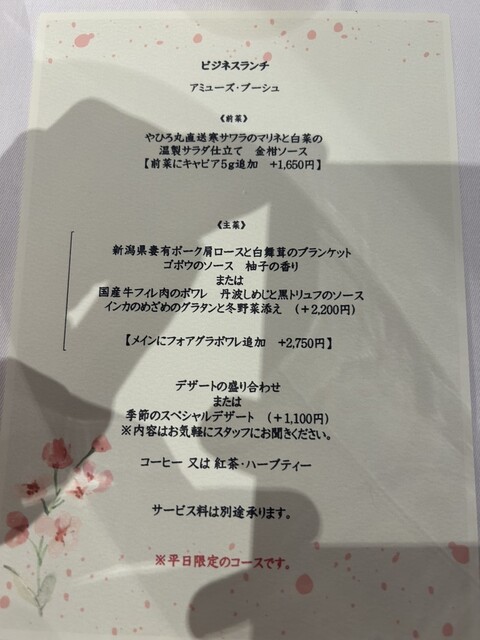 ビジネスランチ
アミューズ・ブーシュ
《前菜》
やひろ丸直送寒サワラのマリネと白菜の
温製サラダ仕立て　金柑ソース
【前菜にキャビア5g追加　+1,650円】
《主菜》
新潟県妻有ポーク肩ロースと白舞茸のブランケット
ゴボウのソース　柚子の香り
または
国産牛フィレ肉のポワレ　丹波しめじと黒トリュフのソース
インカのめざめのグラタンと冬野菜添え　(+2,200円)
【メインにフォアグラポワレ追加　+2,750円】
デザートの盛り合わせ
または
季節のスペシャルデザート　(+1,100円)
※内容はお気軽にスタッフにお聞きください。
コーヒー 又は 紅茶・ハーブティー
サービス料は別途承ります。
※平日限定のコースです。